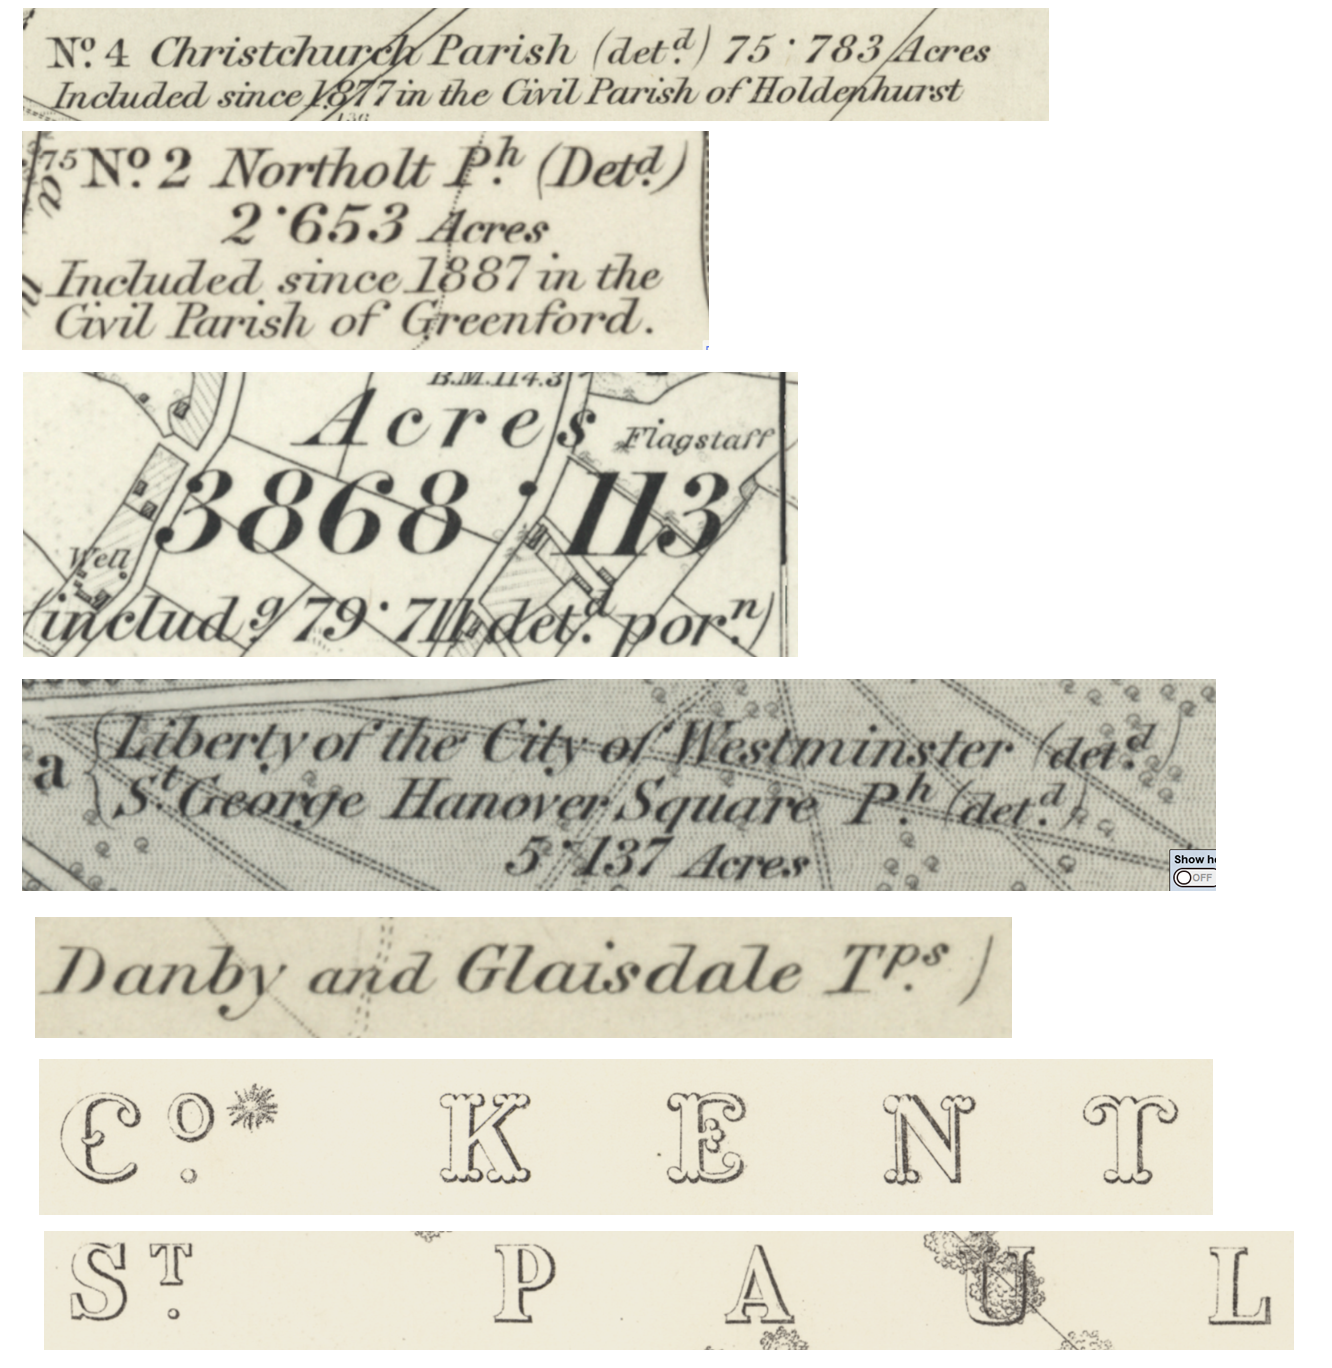 Nº. 4 Christchurch Parish (detᵈ.) 75·783 Acres
Included since 1877 in the Civil Parish of Holdenhurst
136
75
Nº. 2 Northolt Pʰ. (Detᵈ.)
2·653 Acres
Included since 1887 in the
Civil Parish of Greenford.
B.M.114.3
Acres
Flagstaff
3868·113
Well
(includᵍ. 79·711 detᵈ. porⁿ.)
a
Liberty of the City of Westminster (detᵈ.)
Sᵗ. George Hanover Square Pʰ. (detᵈ.)
5·137 Acres
Show
OFF
Danby and Glaisdale Tᵖˢ.)
Cº. KENT
Sᵀ. PAUL